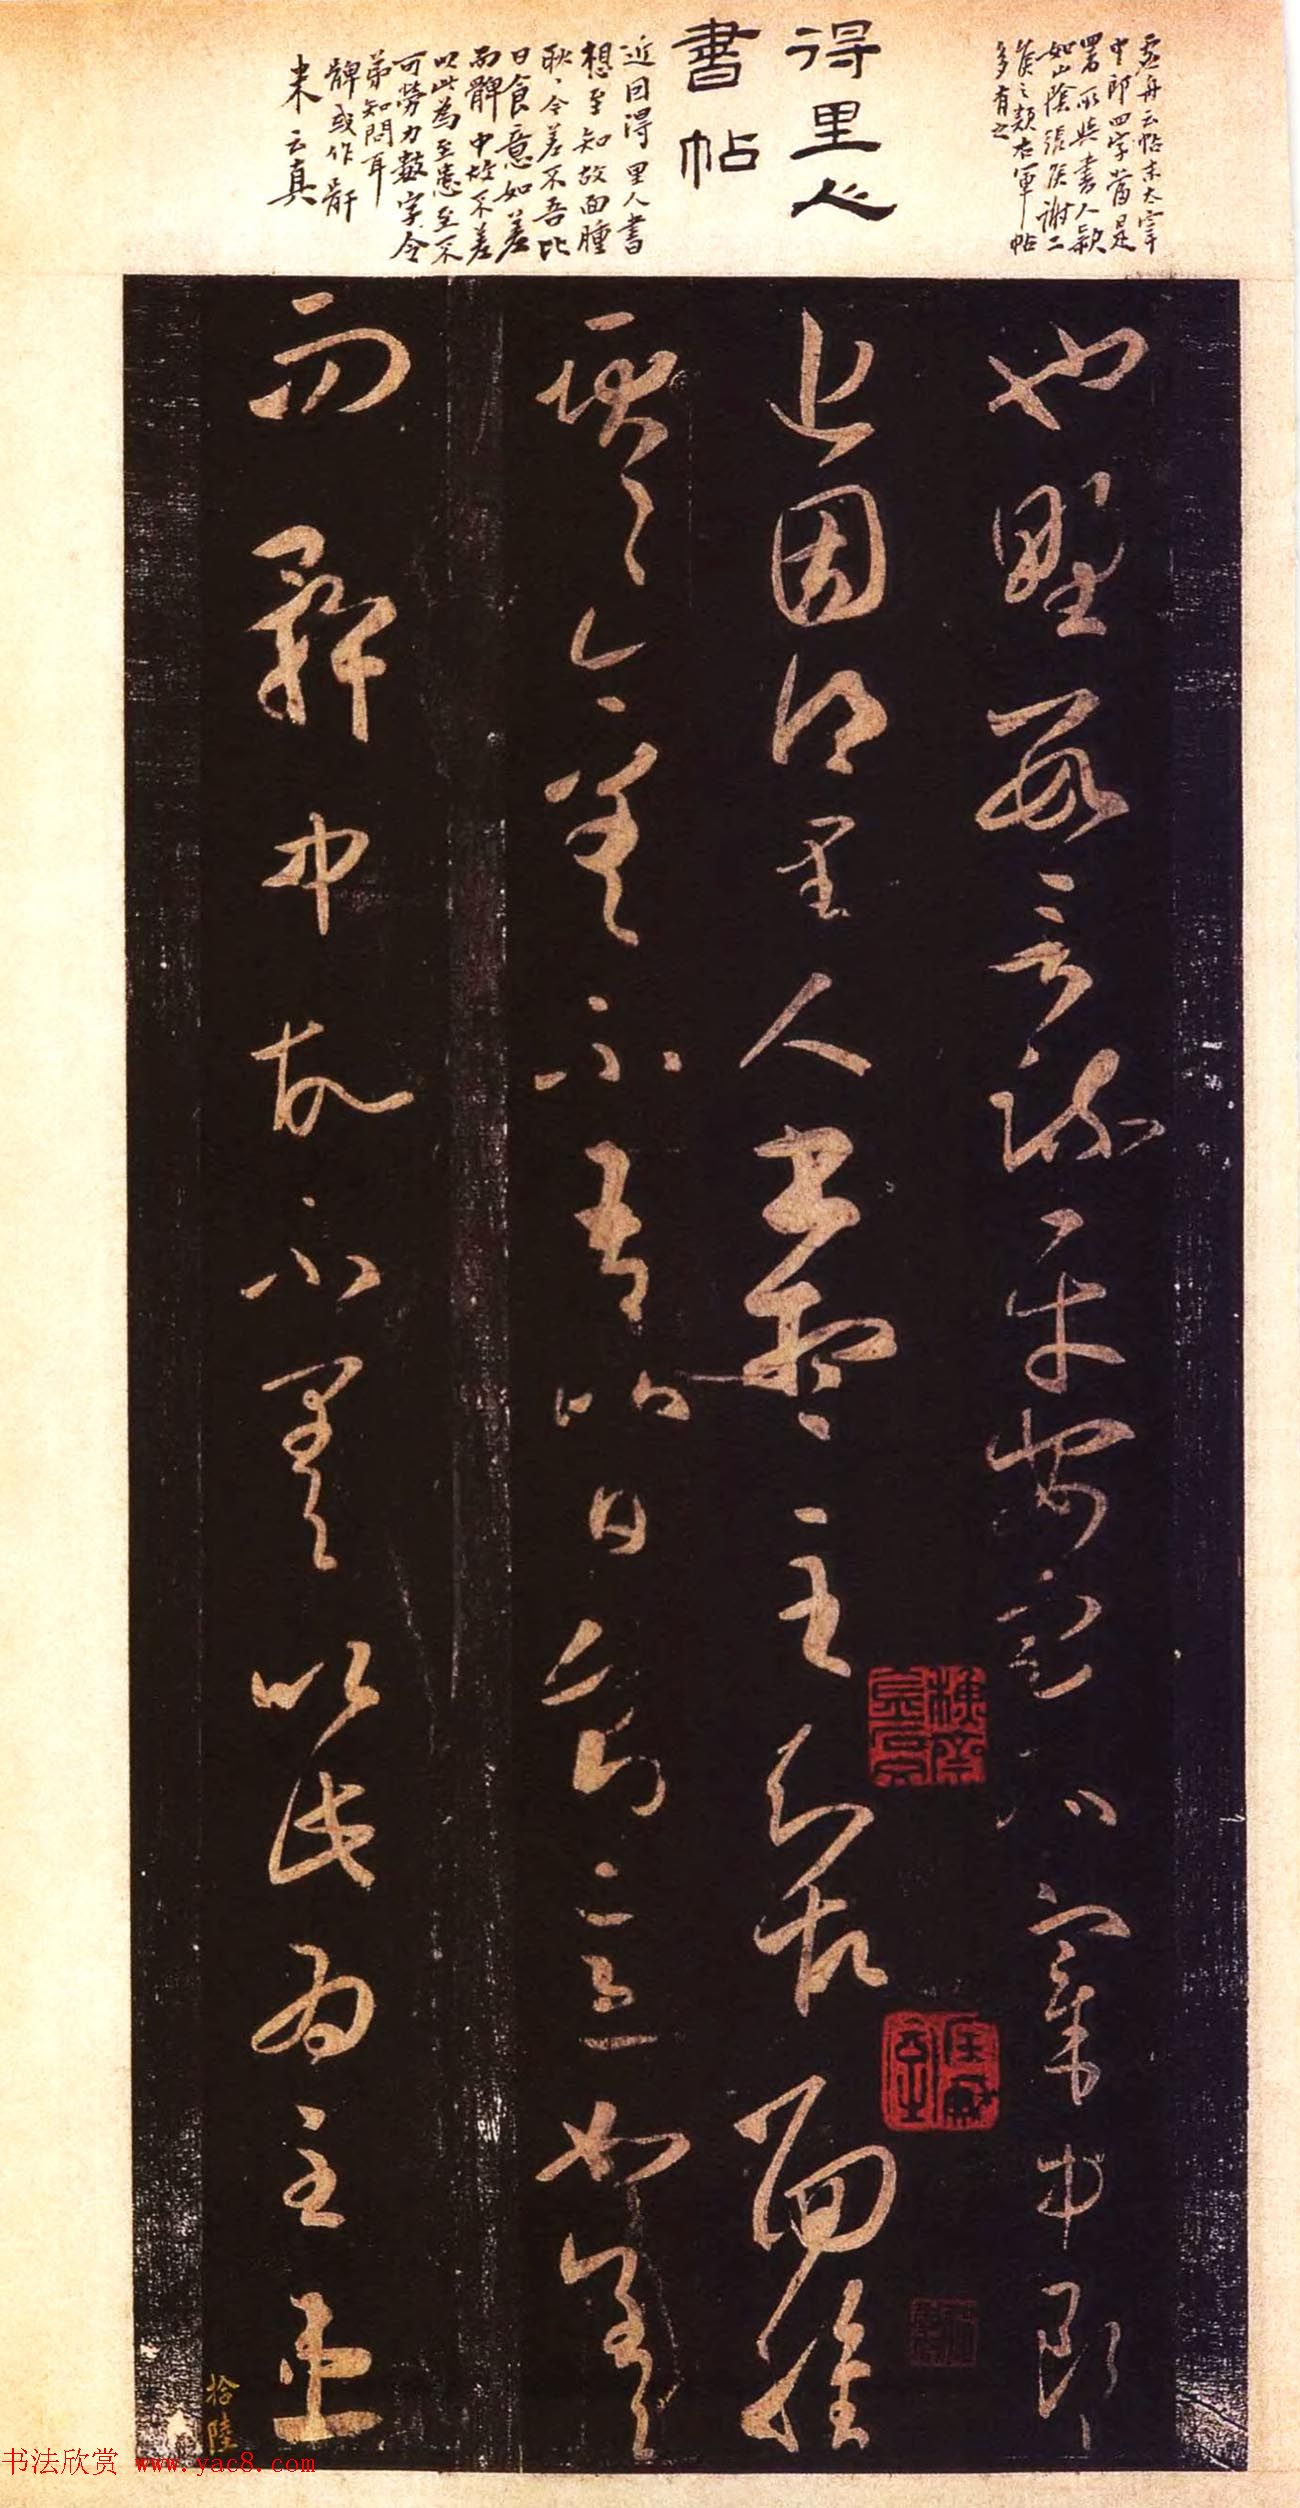 虚舟云帖末太宰
中郎四字當是
署所與書人款
如山陰張侯謝二
侯之類右軍帖
多有之
得里人
書帖
近因得里人書
想至知故面腫
耿耿今差不吾比
日食意如差
而髀中故不差
以此為至患至不
可勞力數字令
弟知問耳
髀或作骭
末云真
也野數言疏平安定太宰中郎
近因得里人書想至知故面腫
耿耿今差不吾比日食意如差
而髀中故不差以此為至患
拾陸
书法欣赏 www.yac8.com